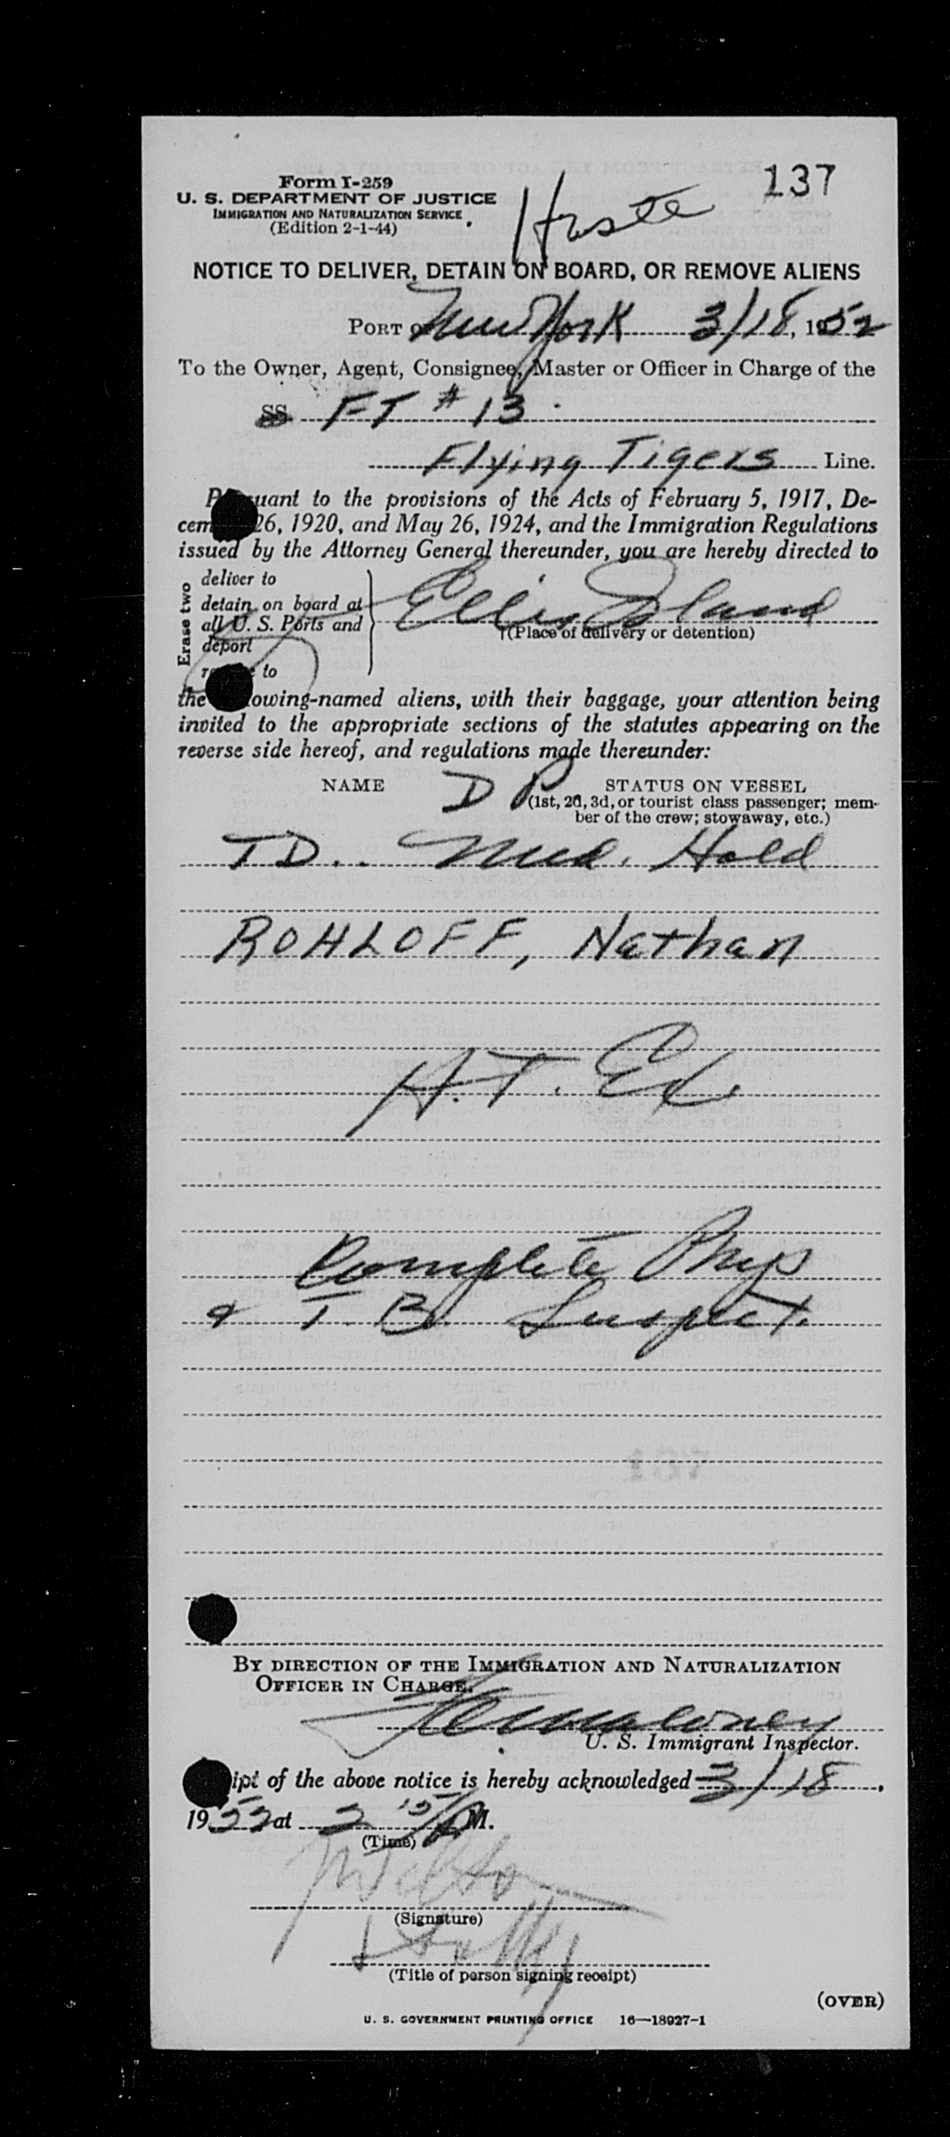 137
Form I-259
U. S. DEPARTMENT OF JUSTICE
IMMIGRATION AND NATURALIZATION SERVICE
(Edition 2-1-44)
Haste
NOTICE TO DELIVER, DETAIN ON BOARD, OR REMOVE ALIENS
PORT OF New York 3/18, 1952
To the Owner, Agent, Consignee, Master or Officer in Charge of the
SS FT #13
Flying Tigers Line.
P uant to the provisions of the Acts of February 5, 1917, De-
cem 26, 1920, and May 26, 1924, and the Immigration Regulations
issued by the Attorney General thereunder, you are hereby directed to
Erase two
deliver to
detain on board at
all U. S. Ports and
deport
to
Ellis Island
(Place of delivery or detention)
the owing-named aliens, with their baggage, your attention being
invited to the appropriate sections of the statutes appearing on the
reverse side hereof, and regulations made thereunder:
NAME DP STATUS ON VESSEL
(1st, 2d, 3d, or tourist class passenger; mem-
ber of the crew; stowaway, etc.)
TD.. Med. Hold
ROHLOFF, Nathan
H.T. Ex.
Complete Phys
& T.B. Suspect.
BY DIRECTION OF THE IMMIGRATION AND NATURALIZATION
OFFICER IN CHARGE.
U. S. Immigrant Inspector.
ipt of the above notice is hereby acknowledged 3/18,
1952 at 2 15/P M.
(Time)
(Signature)
(Title of person signing receipt)
(OVER)
U. S. GOVERNMENT PRINTING OFFICE 16—18927-1